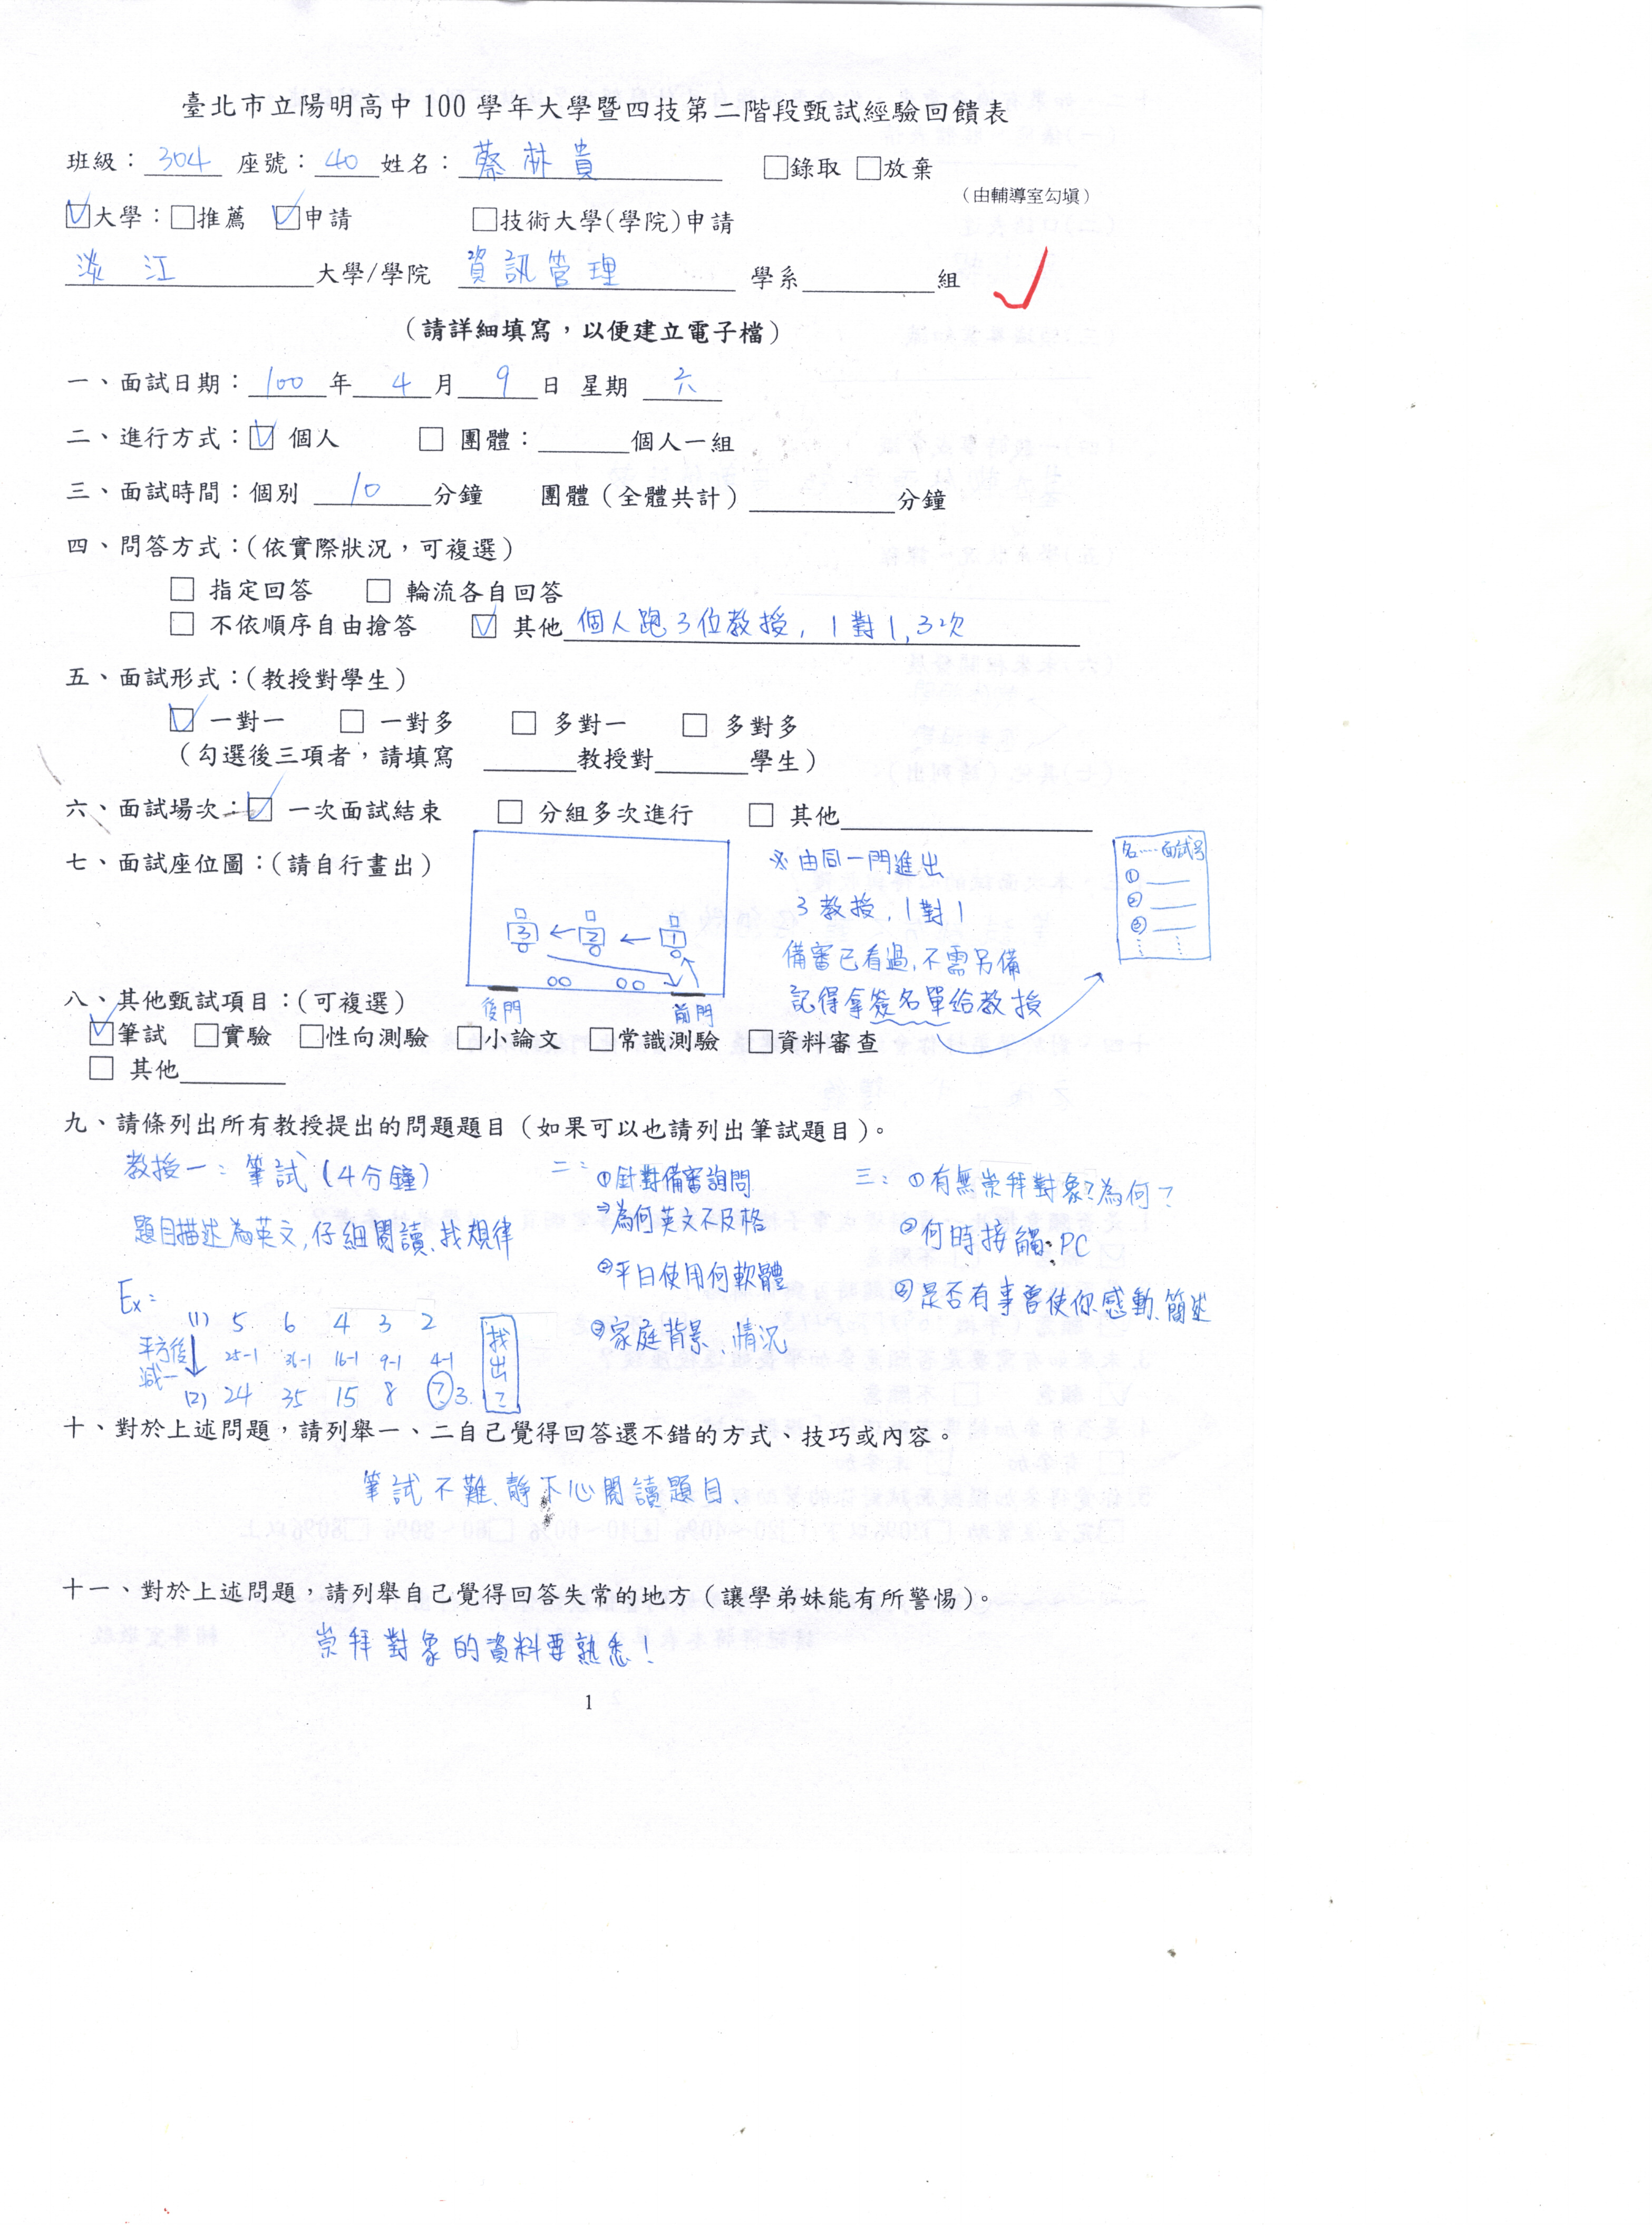 臺北市立陽明高中100學年大學暨四技第二階段甄試經驗回饋表
班級：304 座號：40 姓名：蔡林貴 □錄取 □放棄
（由輔導室勾填）
☑大學：□推薦 ☑申請 □技術大學(學院)申請
淡江大學/學院 資訊管理 學系______組
（請詳細填寫，以便建立電子檔）
一、面試日期：100年4月9日 星期 六
二、進行方式：☑ 個人 □ 團體：______個人一組
三、面試時間：個別 10 分鐘 團體（全體共計）______分鐘
四、問答方式：（依實際狀況，可複選）
□ 指定回答 □ 輪流各自回答
□ 不依順序自由搶答 ☑ 其他 個人跑3位教授，1對1,3次
五、面試形式：（教授對學生）
☑ 一對一 □ 一對多 □ 多對一 □ 多對多
（勾選後三項者，請填寫 ______教授對______學生）
六、面試場次：☑ 一次面試結束 □ 分組多次進行 □ 其他______
七、面試座位圖：（請自行畫出）
3 ← 2 ← 1
後門 前門
※由同一門進出
3教授，1對1
備審已看過，不需另備
記得拿簽名單給教授
名…面試号
①
②
③
八、其他甄試項目：（可複選）
☑筆試 □實驗 □性向測驗 □小論文 □常識測驗 □資料審查
□ 其他______
九、請條列出所有教授提出的問題題目（如果可以也請列出筆試題目）。
教授一：筆試（4分鐘）
題目描述為英文，仔細閱讀、找規律
Ex：
(1) 5 6 4 3 2
平方後減一↓ 25-1 36-1 16-1 9-1 4-1
(2) 24 35 15 8 ? 3
找出?
二：①針對備審詢問
→為何英文不及格
②平日使用何軟體
③家庭背景、情況
三：①有無崇拜對象？為何？
②何時接觸PC
③是否有事曾使你感動、簡述
十、對於上述問題，請列舉一、二自己覺得回答還不錯的方式、技巧或內容。
筆試不難、靜下心閱讀題目、
十一、對於上述問題，請列舉自己覺得回答失常的地方（讓學弟妹能有所警惕）。
崇拜對象的資料要熟悉！
1